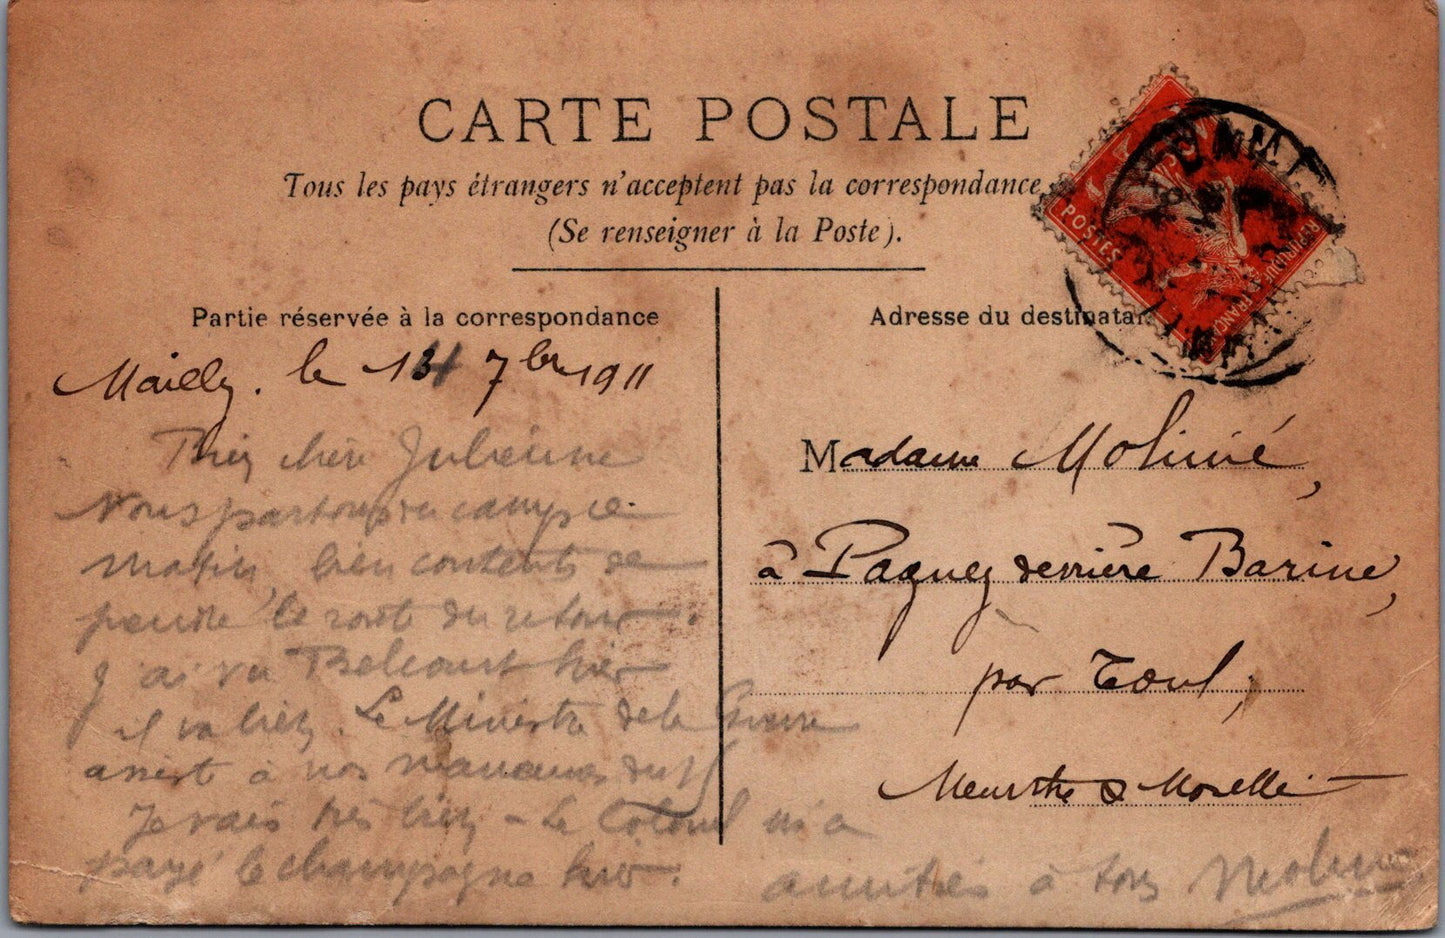 CARTE POSTALE
Tous les pays étrangers n'acceptent pas la correspondance
(Se renseigner à la Poste).
Partie réservée à la correspondance
Adresse du destinatai
POSTES
Mailly. le 14 7bre 1911
Bien chère Julienne
Nous partons du camp ce
matin, bien contents de
prendre le route du retour.
J'ai vu Belcourt hier
il va bien. Le Ministre de la Guerre
assiste à nos manœuvres du
Je vais très bien - Le Colonel m'a
payé le champagne hier.
amitiés à tous
Madame Molinié,
à Pagney derrière Barine,
par Toul,
Meurthe & Moselle